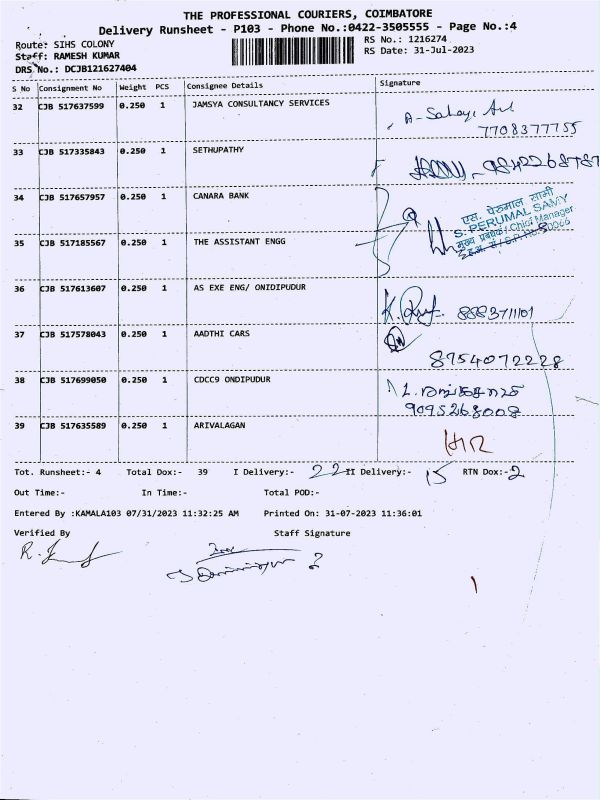 THE PROFESSIONAL COURIERS, COIMBATORE
Delivery Runsheet - P103 - Phone No.:0422-3505555 - Page No.:4
Route: SIHS COLONY
RS No.: 1216274
Staff: RAMESH KUMAR
RS Date: 31-Jul-2023
DRS No.: DCJB121627404
S No Consignment No Weight PCS Consignee Details Signature
32 CJB 517637599 0.250 1 JAMSYA CONSULTANCY SERVICES
7708377755
33 CJB 517335843 0.250 1 SETHUPATHY
34 CJB 517657957 0.250 1 CANARA BANK
एस. पेरुमाल सामी
S. PERUMAL SAMY
मुख्य प्रबंधक / Chief Manager
35 CJB 517185567 0.250 1 THE ASSISTANT ENGG
36 CJB 517613607 0.250 1 AS EXE ENG/ ONIDIPUDUR
8883711101
37 CJB 517578043 0.250 1 AADTHI CARS
8754072228
38 CJB 517699050 0.250 1 CDCC9 ONDIPUDUR
9095268008
39 CJB 517635589 0.250 1 ARIVALAGAN
Tot. Runsheet:- 4 Total Dox:- 39 I Delivery:- 22 II Delivery:- 15 RTN Dox:- 2
Out Time:- In Time:- Total POD:-
Entered By :KAMALA103 07/31/2023 11:32:25 AM Printed On: 31-07-2023 11:36:01
Verified By Staff Signature